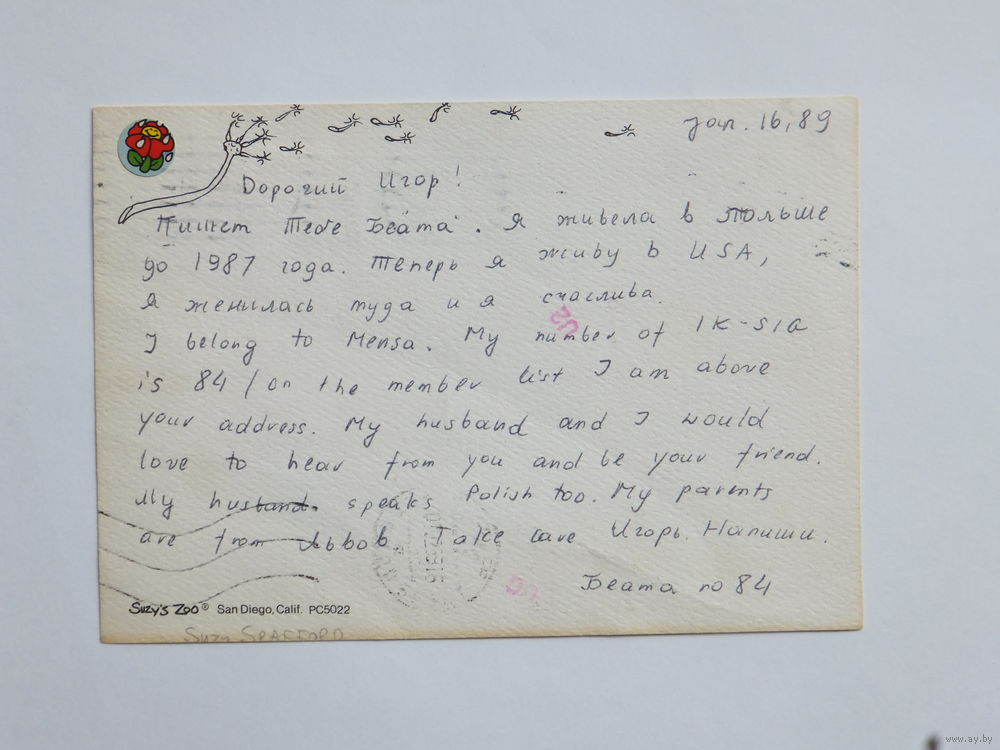 Jan. 16, 89
Дорогий Игор!
Пишет Тебе Беата. Я живела в Польше
до 1987 года. Теперь я живу в USA,
я женилась туда и я счаслива.
I belong to Mensa. My number of IK-SIG
is 84 / on the member list I am above
your address. My husband and I would
love to hear from you and be your friend.
My husband speaks Polish too. My parents
are from Львов Take care Игорь. Напиши.
Беата no 84
Suzy's Zoo® San Diego, Calif. PC5022
Suzy Spafford
www.ay.by